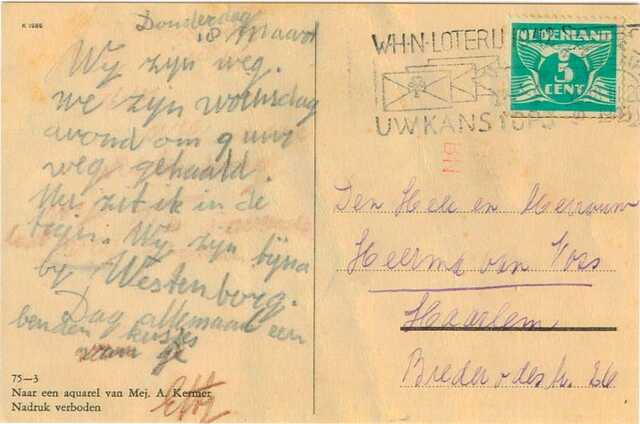 K 1986
Donderdag
18 Maart
Wij zijn weg.
We zijn woensdag
avond om 9 uur
weg gehaald.
Nu zit ik in de
trijn. Wij zijn bijna
bij Westenborg.
Dag allemaal een
benden kusjes
van
Etty
75—3
Naar een aquarel van Mej. A. Kermer
Nadruk verboden
W·H·N·LOTERIJ
UW KANS 1 OP 3
NEDERLAND
5
CENT
Den Heer en Mevrouw
Heerma van Voss
Haarlem
Brederodestr.